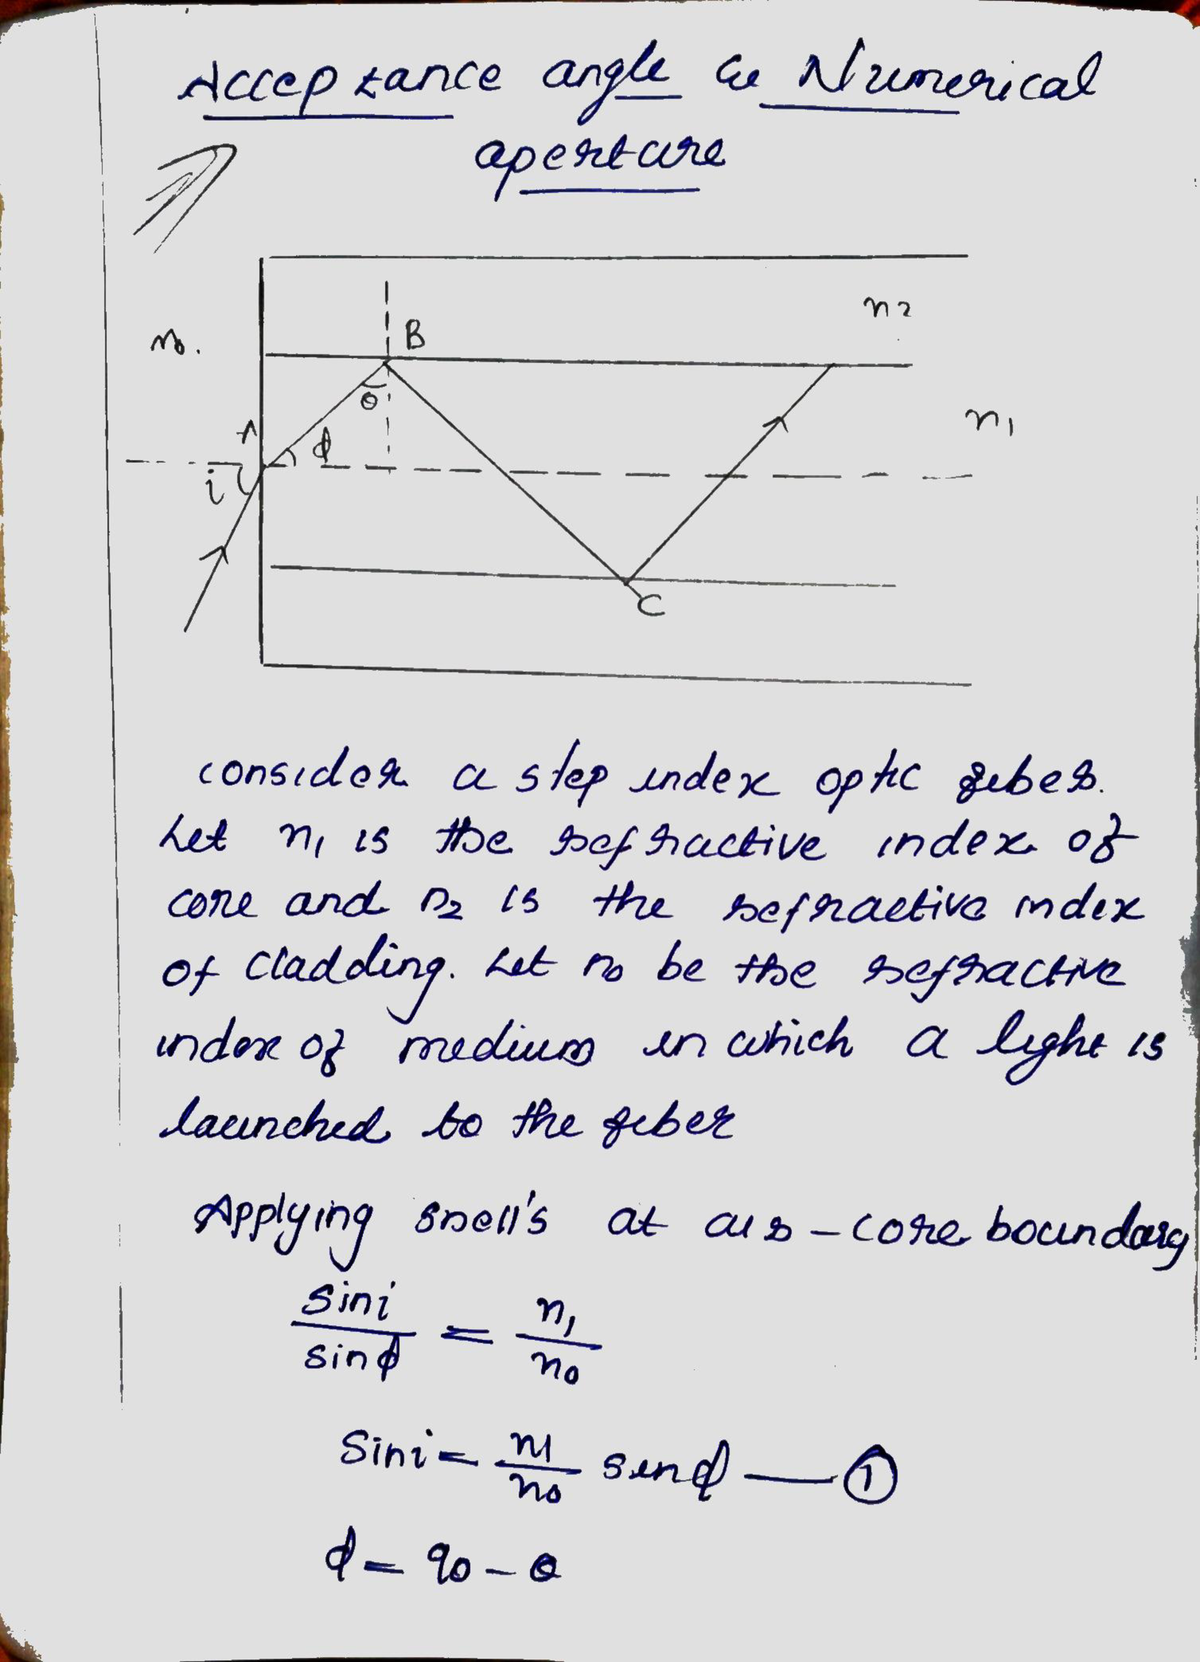 Acceptance angle & Numerical
aperture
n2
B
n0.
θ
n1
A
ϕ
i
C
consider a step index optic fiber.
Let n1 is the refractive index of
core and n2 is the refractive index
of cladding. Let n0 be the refractive
index of medium in which a light is
launched to the fiber
Applying snell's at air - core boundary
sini/sinϕ = n1/n0
Sini = n1/n0 sinϕ — ①
ϕ = 90 - θ